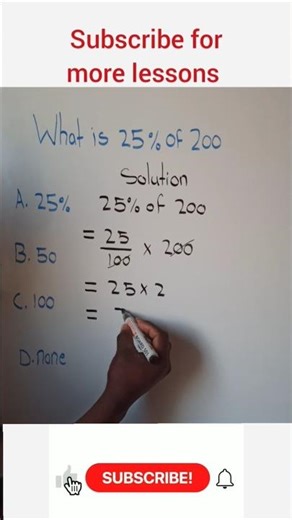 Subscribe for
more lessons
What is 25% of 200
Solution
A. 25%
25% of 200
= 25/100 × 200
B. 50
= 25 × 2
C. 100
=
D. none
SUBSCRIBE!